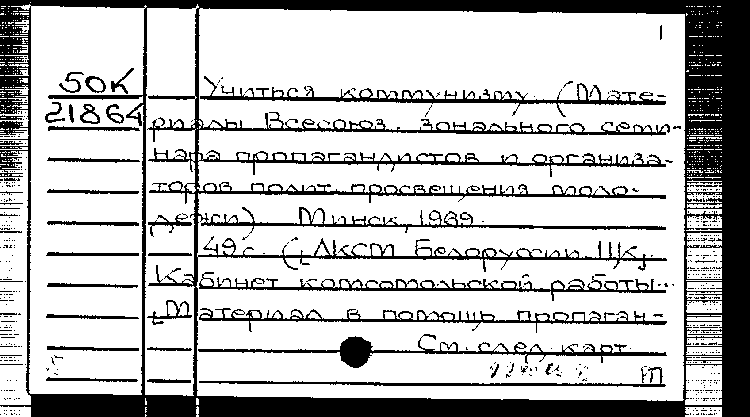 1
50К Учиться коммунизму. (Мате-
21864 риалы Всесоюз. зонального семи-
нара пропагандистов и организа-
торов полит. просвещения моло-
дежи). Минск, 1969.
49 с. (ЛКСМ Белоруссии. ЦК.
Кабинет комсомольской работы.
[Материал в помощь пропаган-
См. след. карт.
П